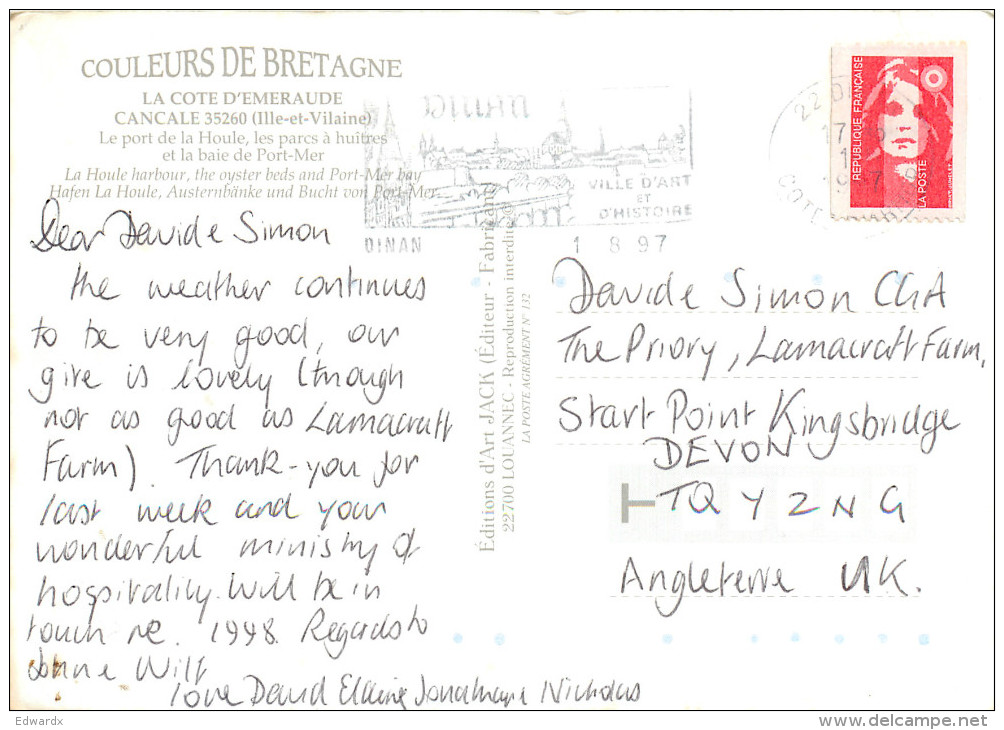 COULEURS DE BRETAGNE
LA COTE D'EMERAUDE
CANCALE 35260 (Ille-et-Vilaine)
Le port de la Houle, les parcs à huîtres
et la baie de Port-Mer
La Houle harbour, the oyster beds and Port-Mer bay
Hafen La Houle, Austernbänke und Bucht von Port-Mer
Dear David e Simon
the weather continues
to be very good, our
gite is lovely (though
not as good as Lamacraft
Farm). Thank-you for
last week and your
wonderful ministry of
hospitality. Will be in
touch re. 1998. Regards to
Will
love David Elaine Jonathan e Nicholas
Éditions d'Art JACK (Éditeur - Fabricant)
22700 LOUANNEC - Reproduction interdite
LA POSTE AGRÉMENT N° 132
VILLE D'ART
ET
D'HISTOIRE
DINAN
1 8 97
REPUBLIQUE FRANÇAISE
LA POSTE
David e Simon
The Priory, Lamacraft Farm,
Start Point Kingsbridge
DEVON
TQ 7 2NG
Angleterre UK.
Edwardx
delcampe.net